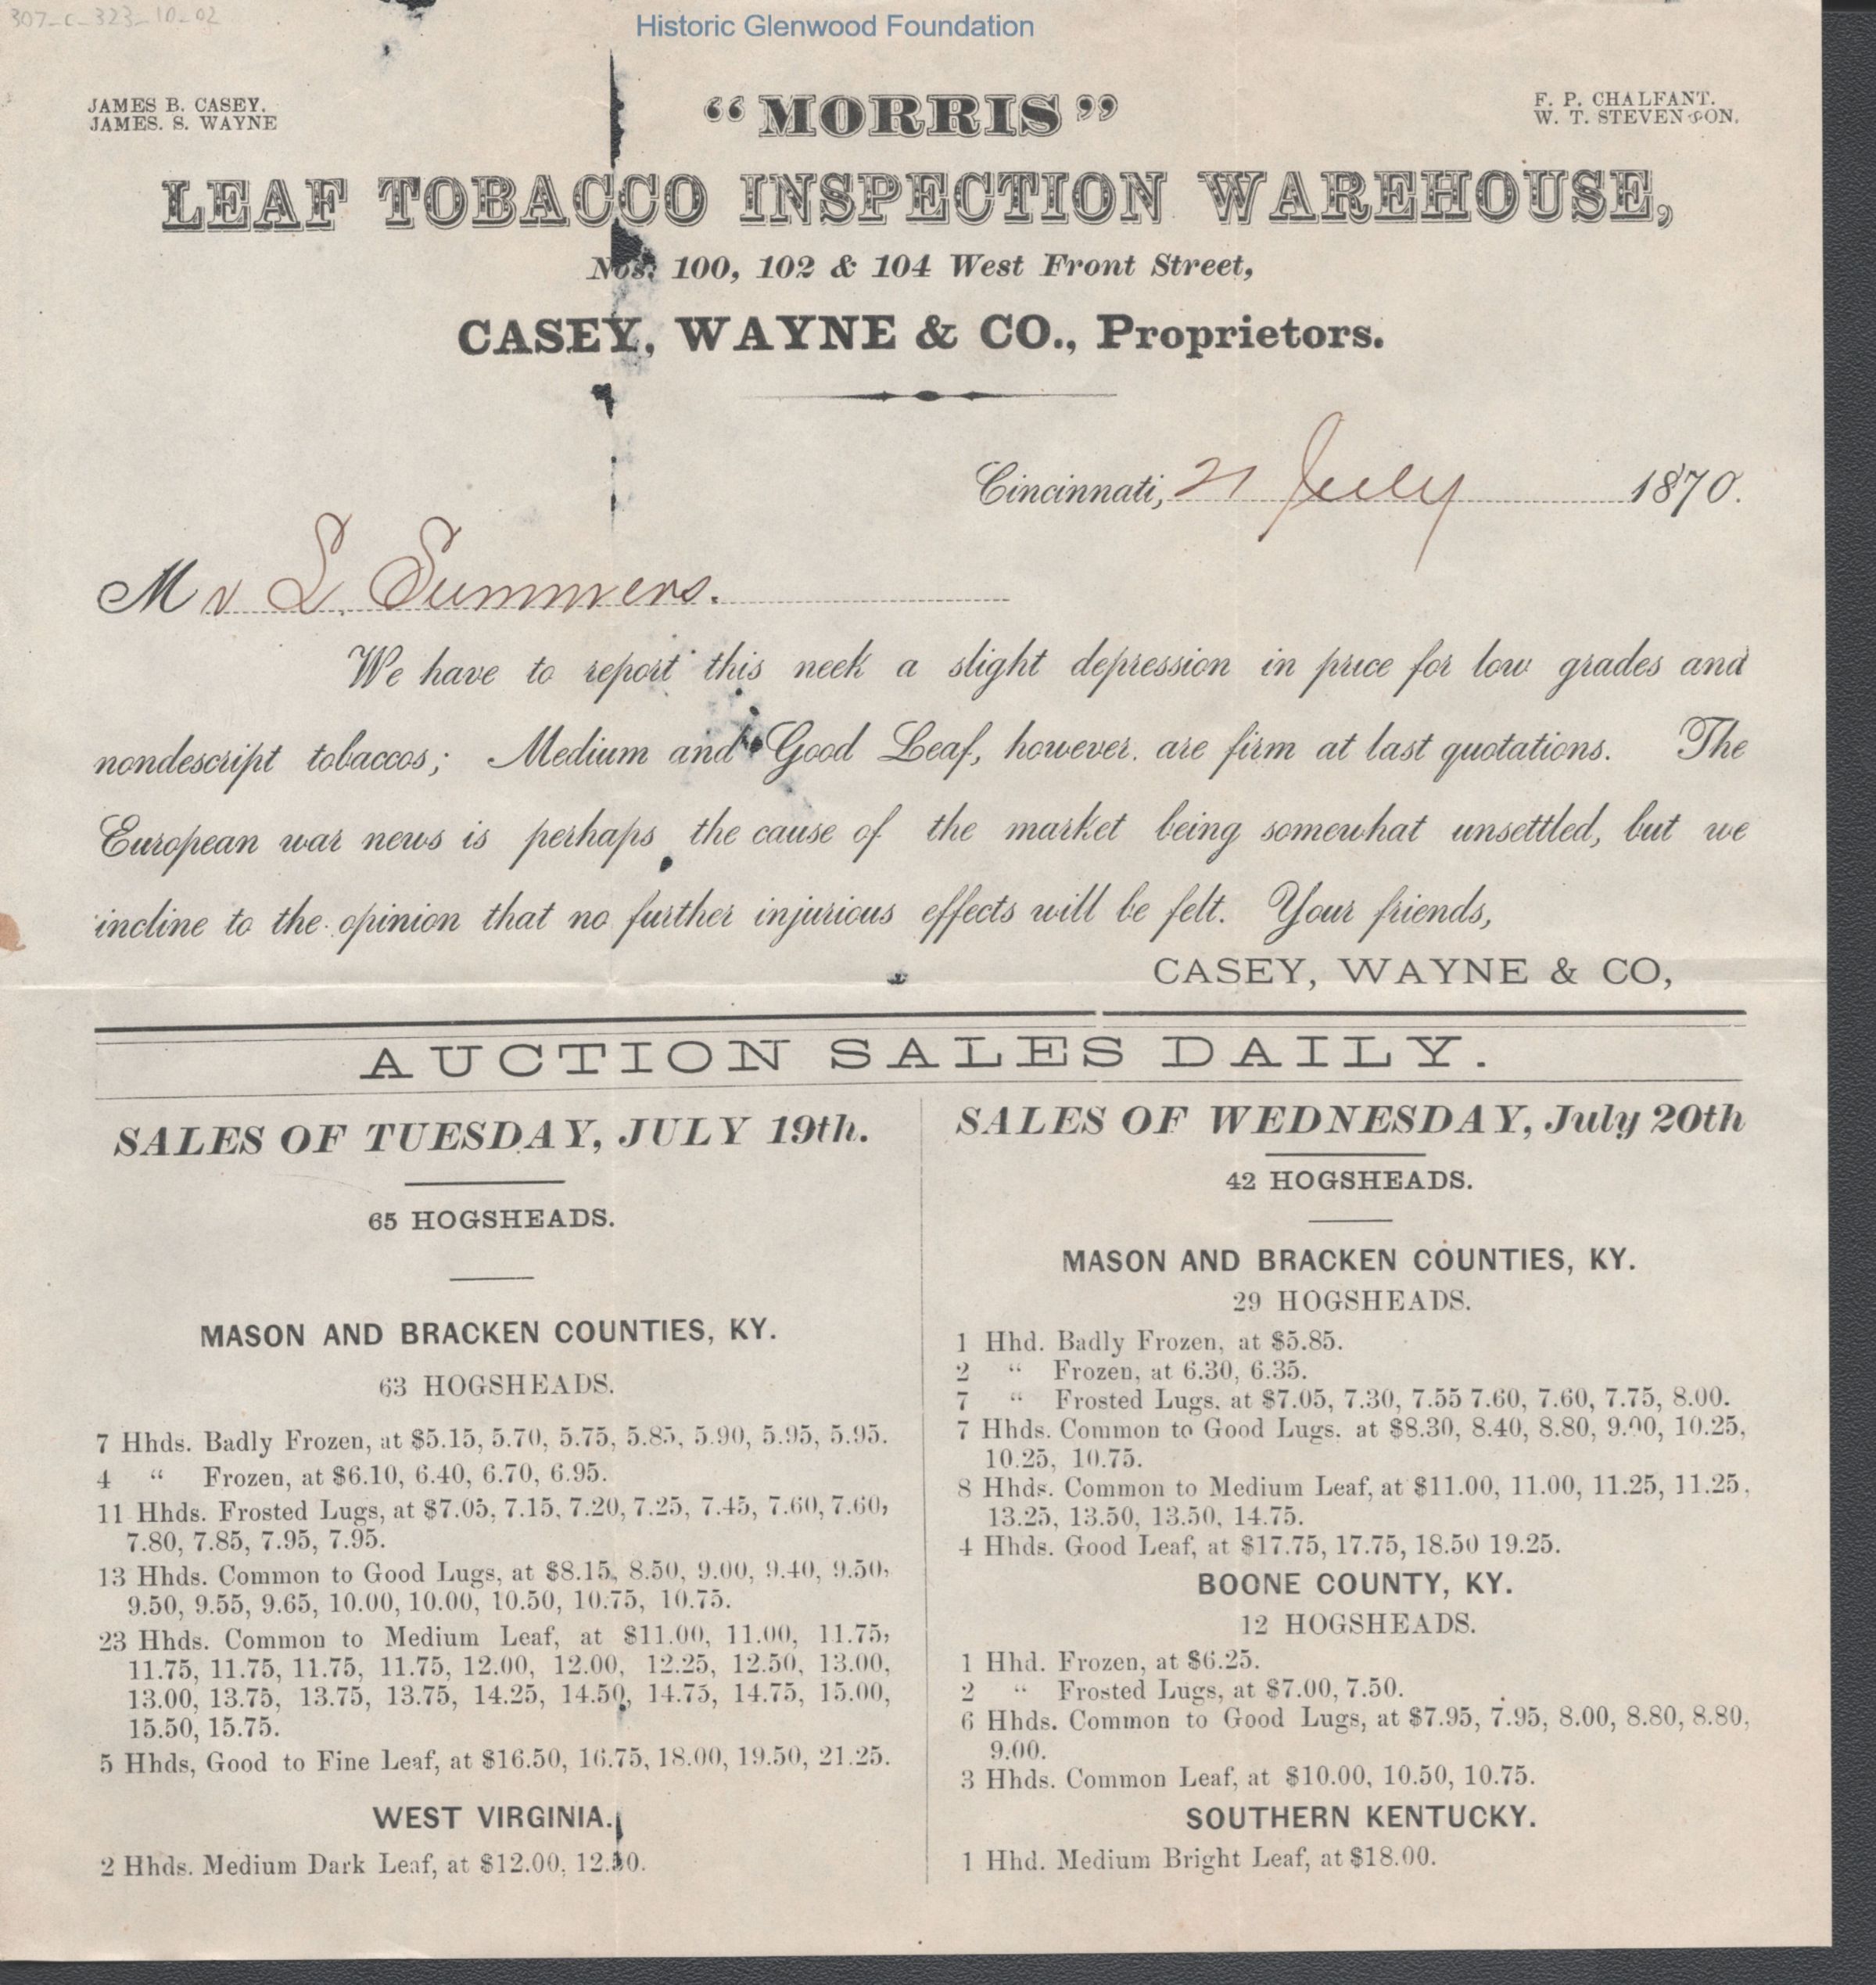 307_c_323_10_02
Historic Glenwood Foundation
JAMES B. CASEY.
JAMES. S. WAYNE
F. P. CHALFANT.
W. T. STEVENSON.
“MORRIS”
LEAF TOBACCO INSPECTION WAREHOUSE,
Nos. 100, 102 & 104 West Front Street,
CASEY, WAYNE & CO., Proprietors.
Cincinnati, 21 July 1870.
Mr L. Summers.
We have to report this neek a slight depression in price for low grades and
nondescript tobaccos; Medium and Good Leaf, however. are firm at last quotations. The
European war news is perhaps the cause of the market being somewhat unsettled, but we
incline to the opinion that no further injurious effects will be felt. Your friends,
CASEY, WAYNE & CO,
AUCTION SALES DAILY.
SALES OF TUESDAY, JULY 19th.
65 HOGSHEADS.
MASON AND BRACKEN COUNTIES, KY.
63 HOGSHEADS.
7 Hhds. Badly Frozen, at $5.15, 5.70, 5.75, 5.85, 5.90, 5.95, 5.95.
4 “ Frozen, at $6.10, 6.40, 6.70, 6.95.
11 Hhds. Frosted Lugs, at $7.05, 7.15, 7.20, 7.25, 7.45, 7.60, 7.60,
7.80, 7.85, 7.95, 7.95.
13 Hhds. Common to Good Lugs, at $8.15, 8.50, 9.00, 9.40, 9.50,
9.50, 9.55, 9.65, 10.00, 10.00, 10.50, 10.75, 10.75.
23 Hhds. Common to Medium Leaf, at $11.00, 11.00, 11.75,
11.75, 11.75, 11.75, 11.75, 12.00, 12.00, 12.25, 12.50, 13.00,
13.00, 13.75, 13.75, 13.75, 14.25, 14.50, 14.75, 14.75, 15.00,
15.50, 15.75.
5 Hhds, Good to Fine Leaf, at $16.50, 16.75, 18.00, 19.50, 21.25.
WEST VIRGINIA.
2 Hhds. Medium Dark Leaf, at $12.00,
SALES OF WEDNESDAY, July 20th
42 HOGSHEADS.
MASON AND BRACKEN COUNTIES, KY.
29 HOGSHEADS.
1 Hhd. Badly Frozen, at $5.85.
2 “ Frozen, at 6.30, 6.35.
7 “ Frosted Lugs. at $7.05, 7.30, 7.55 7.60, 7.60, 7.75, 8.00.
7 Hhds. Common to Good Lugs. at $8.30, 8.40, 8.80, 9.00, 10.25,
10.25, 10.75.
8 Hhds. Common to Medium Leaf, at $11.00, 11.00, 11.25, 11.25,
13.25, 13.50, 13.50, 14.75.
4 Hhds. Good Leaf, at $17.75, 17.75, 18.50 19.25.
BOONE COUNTY, KY.
12 HOGSHEADS.
1 Hhd. Frozen, at $6.25.
2 “ Frosted Lugs, at $7.00, 7.50.
6 Hhds. Common to Good Lugs, at $7.95, 7.95, 8.00, 8.80, 8.80,
9.00.
3 Hhds. Common Leaf, at $10.00, 10.50, 10.75.
SOUTHERN KENTUCKY.
1 Hhd. Medium Bright Leaf, at $18.00.